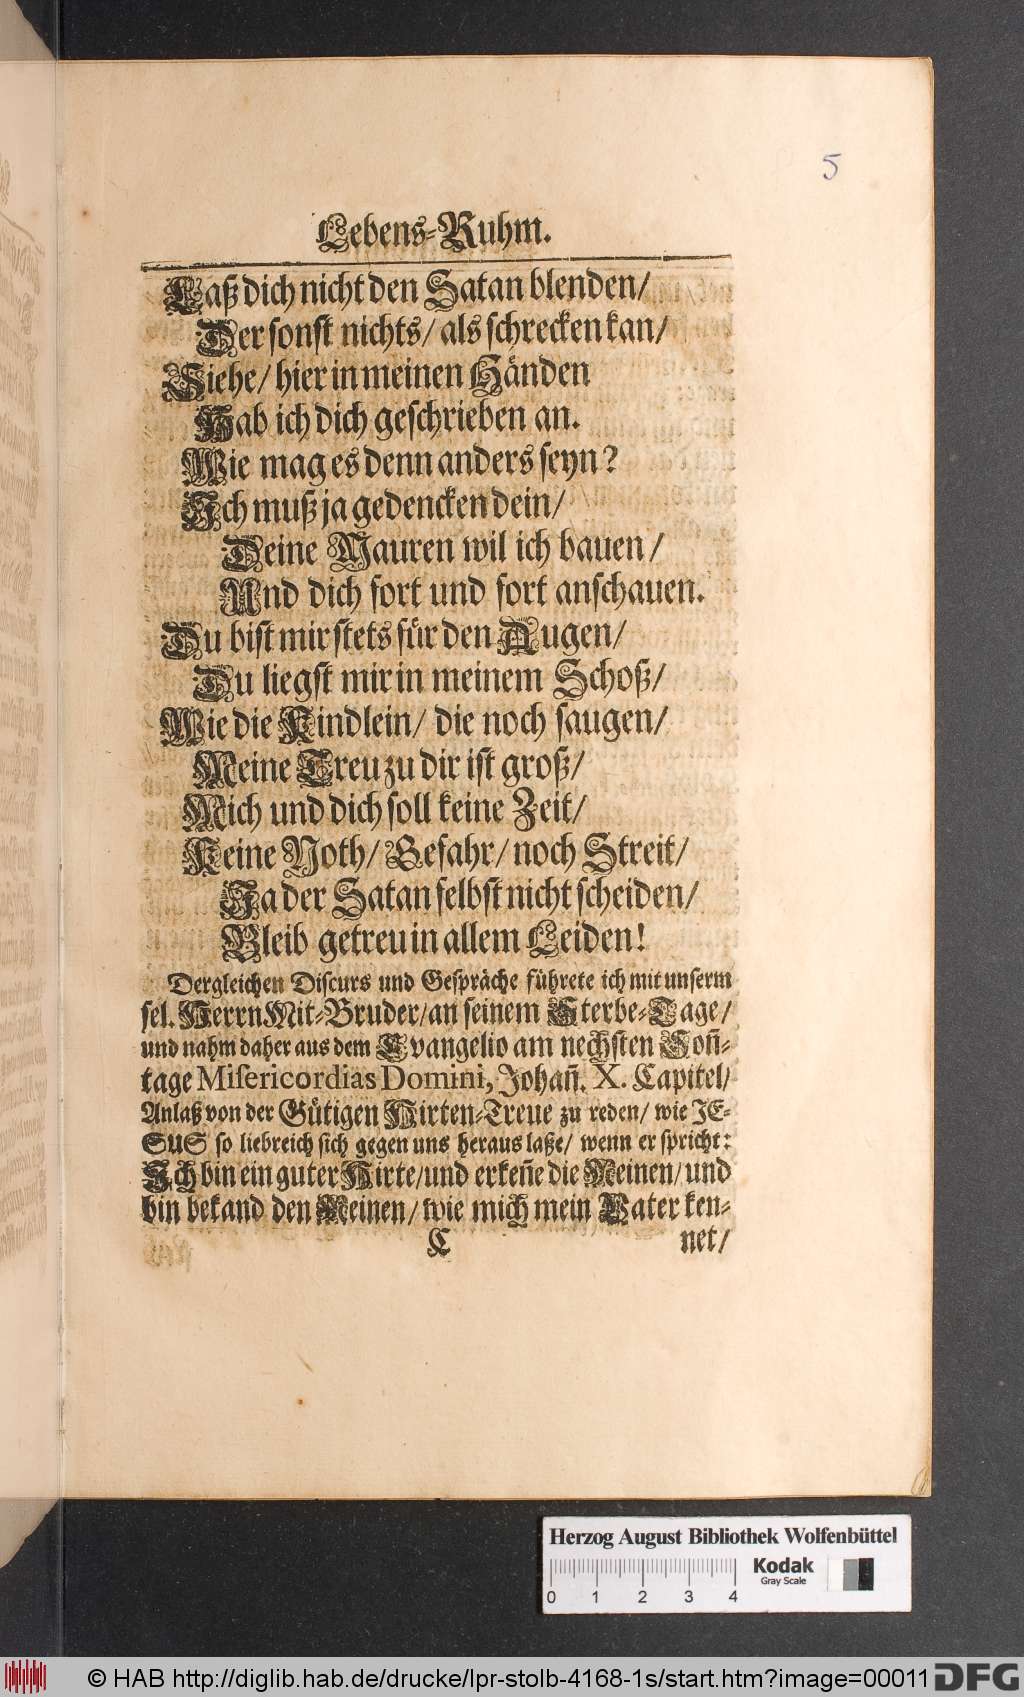 5
Lebens-Ruhm.
Laß dich nicht den Satan blenden/
Der sonst nichts/ als schrecken kan/
Siehe/ hier in meinen Händen
Hab ich dich geschrieben an.
Wie mag es denn anders seyn?
Ich muß ja gedencken dein/
Deine Mauren wil ich bauen/
Und dich fort und fort anschauen.
Du bist mir stets für den Augen/
Du liegst mir in meinem Schoß/
Wie die Kindlein/ die noch saugen/
Meine Treu zu dir ist groß/
Mich und dich soll keine Zeit/
Keine Noth/ Gefahr/ noch Streit/
Ja der Satan selbst nicht scheiden/
Bleib getreu in allem Leiden!
Dergleichen Discurs und Gespräche führete ich mit unserm
sel. Herrn Mit-Bruder/ an seinem Sterbe-Tage/
und nahm daher aus dem Evangelio am nechsten Soñ-
tage Misericordias Domini, Johañ. X. Capitel/
Anlaß von der Gütigen Hirten-Treue zu reden/ wie JE-
SUS so liebreich sich gegen uns heraus laße/ wenn er spricht:
Ich bin ein guter Hirte/ und erkeñe die Meinen/ und
bin bekand den Meinen/ wie mich mein Vater ken-
C net/
Herzog August Bibliothek Wolfenbüttel
Kodak
Gray Scale
0 1 2 3 4
© HAB http://diglib.hab.de/drucke/lpr-stolb-4168-1s/start.htm?image=00011
DFG